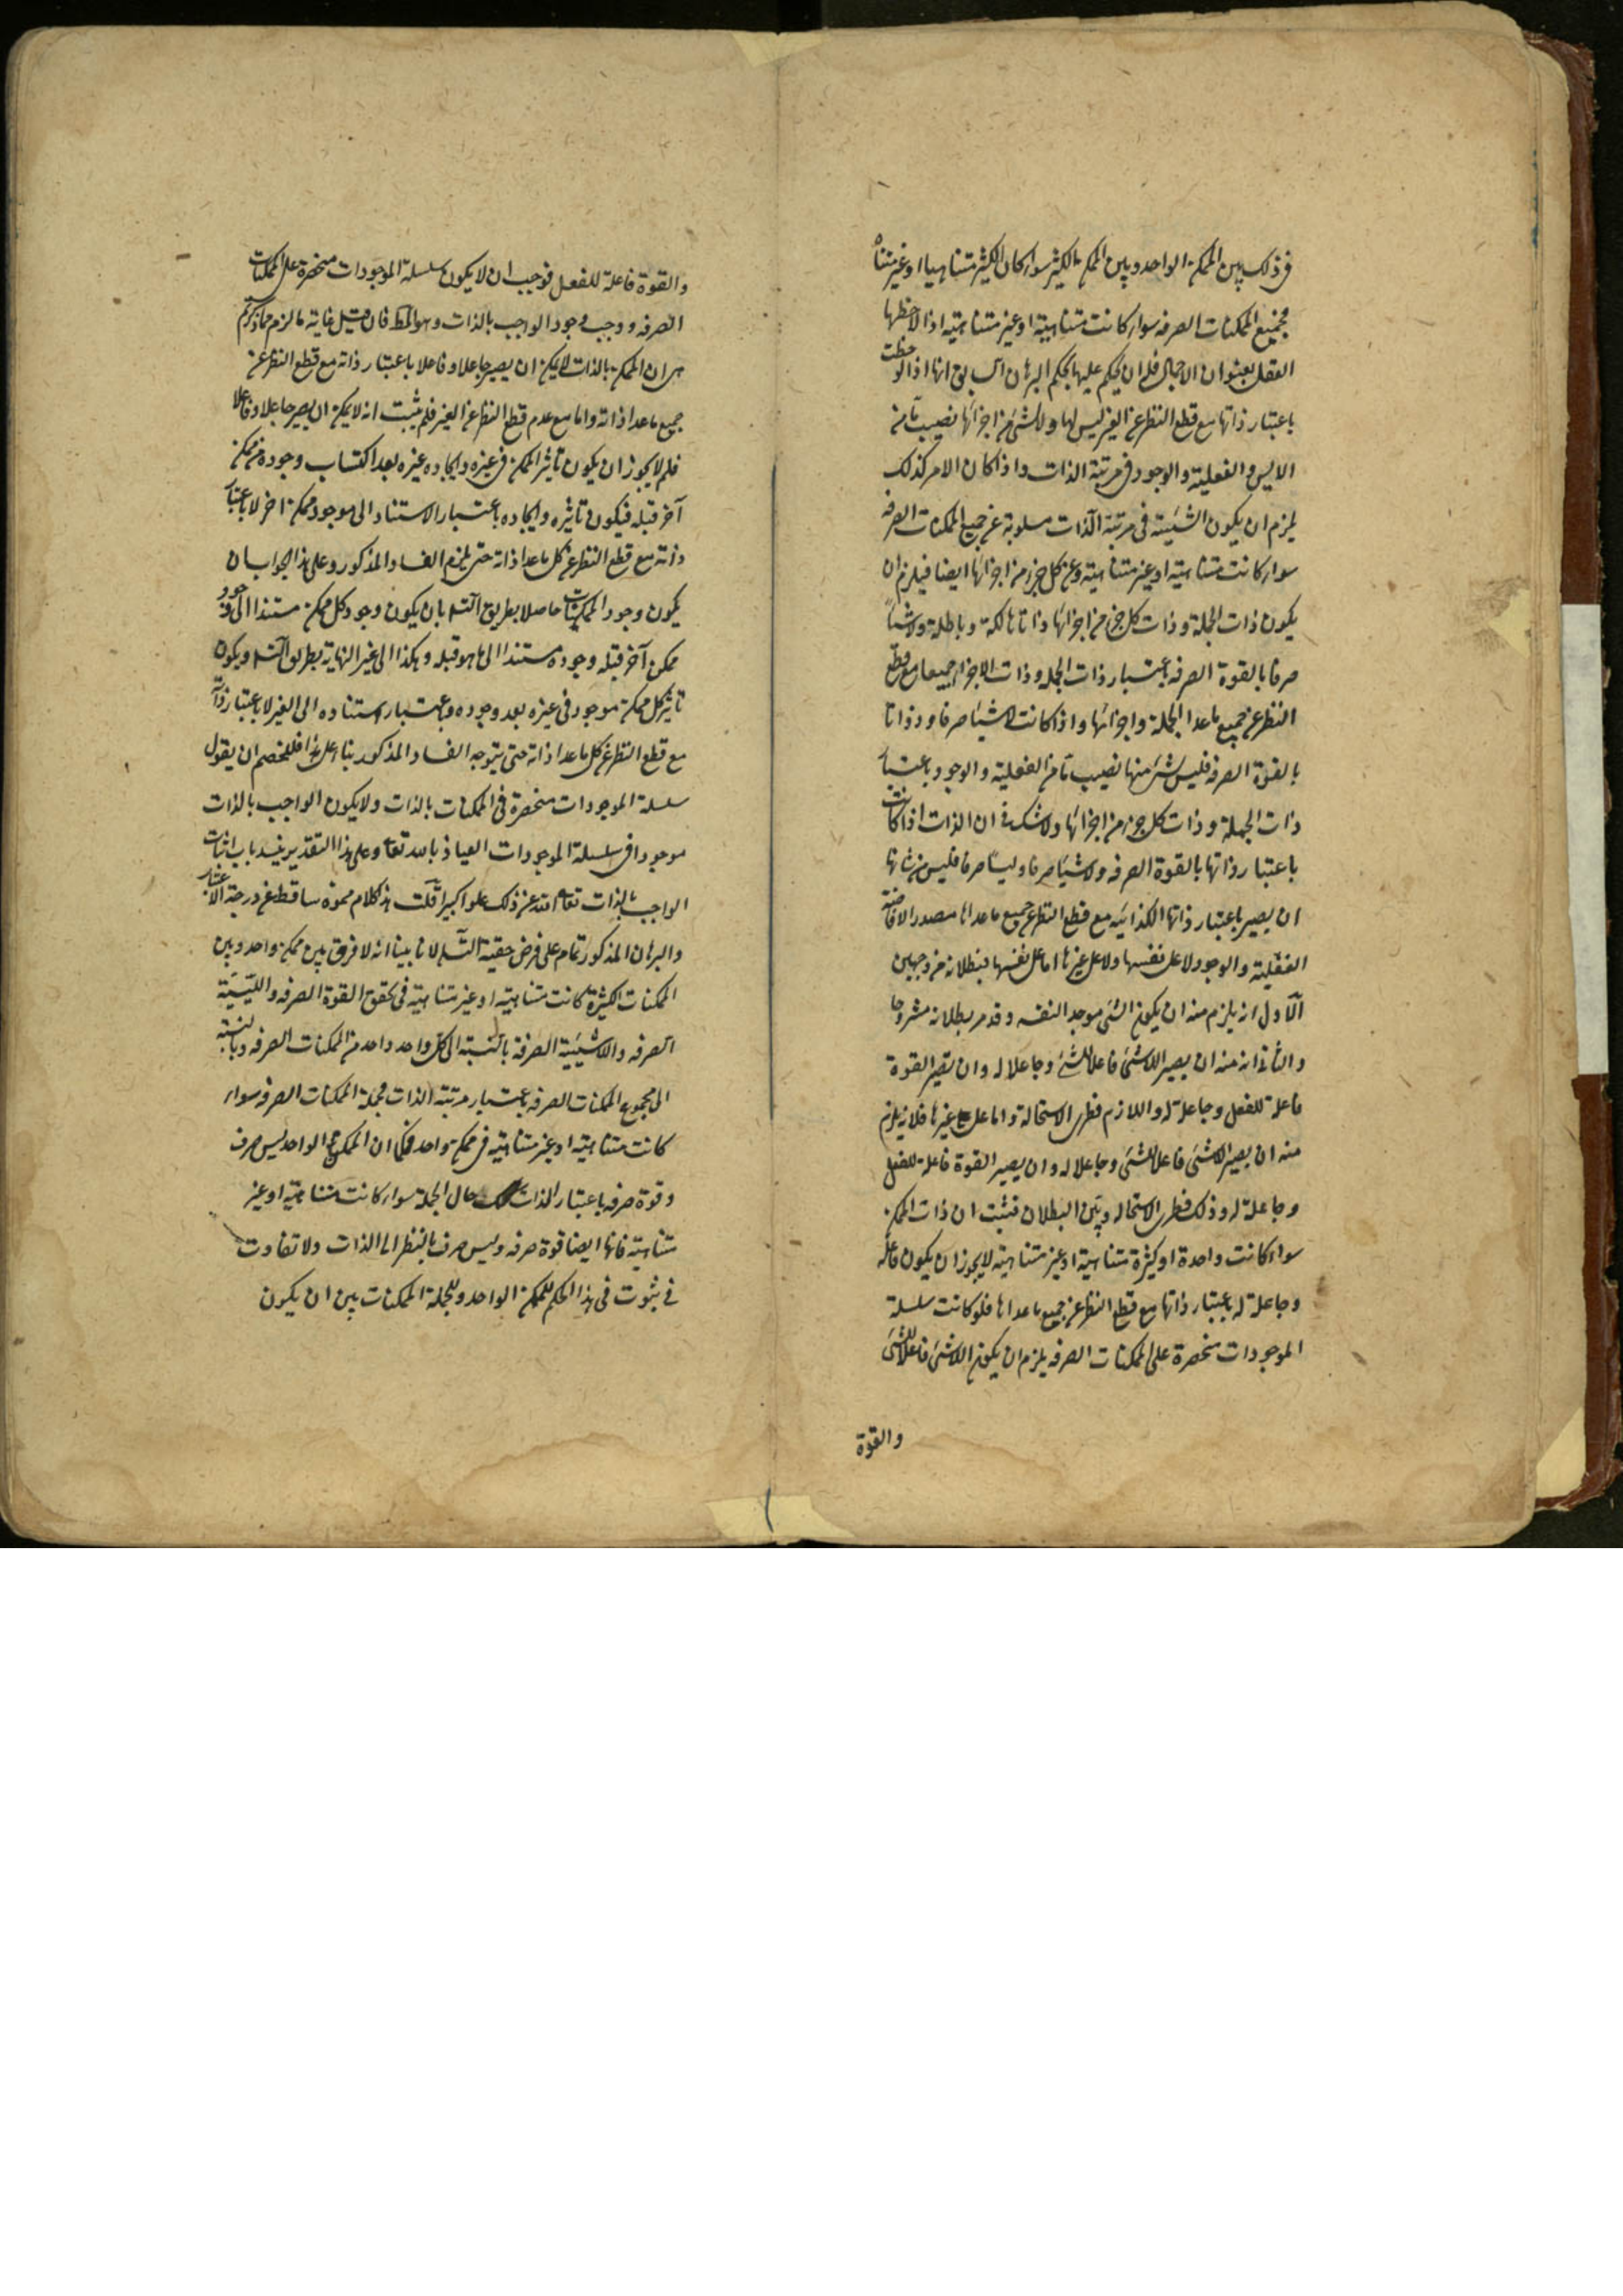 فی ذلک بین الممکن الواحد وبین الممکن الکثیر سواء کان الکثیر متناهیا او غیر متناه
فجمیع الممکنات الصرفه سواء کانت متناهیة او غیر متناهیة اذا لاحظها
العقل بعنوان الاجمال فله ان یحکم علیها بحکم البرهان السابق انها اذا لوحظت
باعتبار ذاتها مع قطع النظر عن الغیر لیس لها ولا لشئ من اجزائها نصیب تا من
الایس والفعلیة والوجود فی مرتبة الذات واذا کان الامر کذلک
یلزم ان یکون الشیئیة فی مرتبة الذات مسلوبة عن جمیع الممکنات الصرفه
سواء کانت متناهیة او غیر متناهیة وعن کل جزء من اجزائها ایضا فیلزم ان
یکون ذات الجملة وذات کل جزء من اجزائها ذاتا هالکة وباطلة ولاشیئاً
صرفا بالقوة الصرفه باعتبار ذات الجمله وذات الاجزاء جمیعا مع قطع
النظر عن جمیع ما عدا الجملة واجزائها واذا کانت لاشیئا صرفا وذواتا
بالقوة الصرفه فلیس لشئ منها نصیب تا من الفعلیة والوجود باعتبار
ذات الجملة وذات کل جزء من اجزائها ولا شک فی ان الذات اذا کانت
باعتبار ذاتها بالقوة الصرفه ولاشیئا صرفا ولیسا صرفا فلیس من شانها
ان یصیر باعتبار ذاتها الکذائیه مع قطع النظر عن جمیع ما عداها مصدر الافاضة
الفعلیة والوجود لا علی نفسها ولا علی غیرها اما علی نفسها فبطلانه من وجهین
الاول انه یلزم منه ان یکون الشئ موجد النفسه وقد مر بطلانه مشروحا
والثانی انه منه ان یصیر اللاشئ فاعلا للشئ وجاعلا له وان تصیر القوة
فاعلة للفعل وجاعلة له واللازم فطری الاستحالة واما علی غیرها فلانه یلزم
منه ان یصیر اللاشئ فاعلا للشئ وجاعلا له وان یصیر القوة فاعلة للفعل
وجاعلة له وذلک فطری الاستحاله وبین البطلان فثبت ان ذات الممکن
سواء کانت واحدة او کثیرة متناهیة او غیر متناهیة لا یجوز ان یکون فاعله
وجاعلة له باعتبار ذاتها مع قطع النظر عن جمیع ما عداها فلو کانت سلسلة
الموجودات منحصرة علی الممکنات الصرفه یلزم ان یکون اللاشئ فاعلا للشئ
والقوة
والقوة فاعلة للفعل فوجب ان لا یکون سلسلة الموجودات منحصرة علی الممکنات
الصرفه ووجب وجود الواجب بالذات وهو المط فان قیل غایة ما لزم مما ذکرتم
هی ان الممکن بالذات لا یمکن ان یصیر جاعلا وفاعلا باعتبار ذاته مع قطع النظر عن
جمیع ما عدا ذاته واما مع عدم قطع النظر عن الغیر فلم یثبت انه لا یمکن ان یصیر جاعلا وفاعلا
فلم لا یجوز ان یکون تاثیر الممکن فی غیره وایجاده غیره بعد اکتساب وجوده من ممکن
آخر قبله فیکون تاثیره وایجاده باعتبار الاستناد الی موجود ممکن اخر لا باعتبار
ذاته مع قطع النظر عن کل ما عدا ذاته حتی یلزم الفساد المذکور وعلی هذا الجواب بان
یکون وجود الممکنات حاصلا بطریق التسه بان یکون وجود کل ممکن مستندا الی وجود
ممکن آخر قبله وجوده مستندا الی ما هو قبله وهکذا الی غیر النهایة بطریق التسه ویکون
تاثیر کل ممکن موجود فی غیره بعد وجوده وباعتبار استناده الی الغیر لا باعتبار ذاته
مع قطع النظر عن کل ما عدا ذاته حتی یتوجه الفساد المذکور بناء علی هذا فللخصم ان یقول
سلسلة الموجودات منحصرة فی الممکنات بالذات ولا یکون الواجب بالذات
موجودا فی سلسلة الموجودات العیاذ بالله تعا وعلی هذا التقدیر ینسد باب اثبات
الواجب بالذات تعا الله عن ذلک علوا کبیرا قلت هذ کلام مموه ساقط عن درجة الاعتبار
والبرهان المذکور تمام علی فرض حقیة التسه لانا بینا انه لا فرق بین ممکن واحد وبین
الممکنات الکثیرة کانت متناهیة او غیر متناهیة فی تحقق القوة الصرفه واللیسیة
الصرفه واللاشیئیة الصرفة بالنسبة الی کل واحد واحد من الممکنات الصرفه وبالنسبة
الی مجموع الممکنات الصرفه باعتبار مرتبة الذات فجملة الممکنات الصرفه سواء
کانت متناهیة او غیر متناهیة فی حکم ممکن واحد فکما ان الممکن الواحد لیس صرف
وقوة صرفه باعتبار الذات کذلک حال الجملة سواء کانت متناهیة او غیر
متناهیة فانها ایضا قوة صرفه ولیس صرف بالنظر الی الذات ولا تفاوت
فی ثبوت فی هذا الحکم للممکن الواحد ولجملة الممکنات بین ان یکون